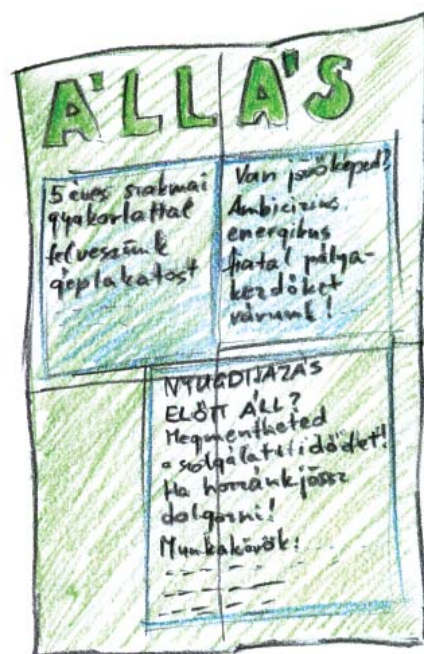 ÁLLÁS
5 éves szakmai
gyakorlattal
felveszünk
géplakatost
Van jövőképed?
Ambiciózus,
energikus
fiatal pálya-
kezdőket
várunk!
NYUGDÍJAZÁS
ELŐTT ÁLL?
Megmentheted
a szolgálati idődet!
Ha hozzánk jössz
dolgozni!
Munkakörök: